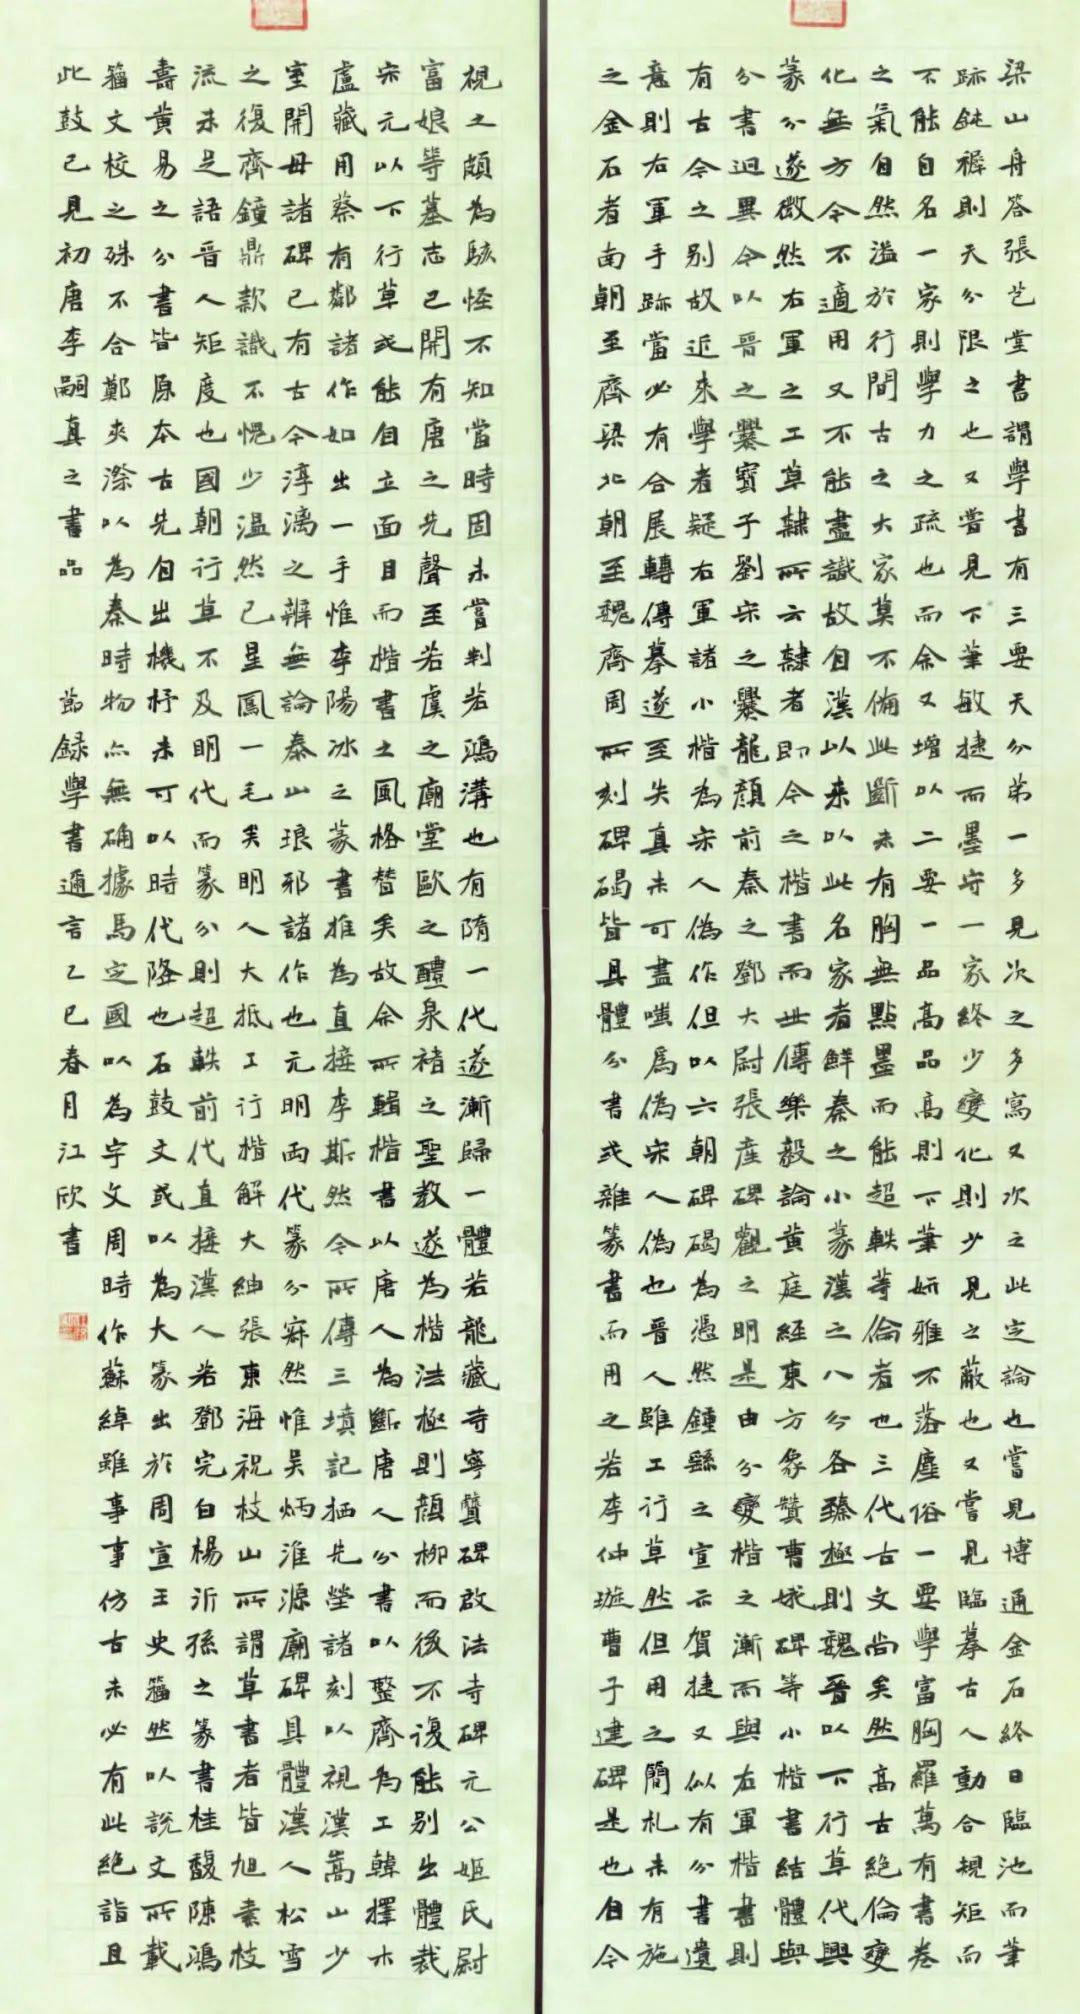 梁山舟答張芑堂書謂學書有三要天分弟一多見次之多寫又次之此定論也嘗見博通金石終日臨池而筆
跡鈍稚則天分限之也又嘗見下筆敏捷而墨守一家終少變化則少見之蔽也又嘗見臨摹古人動合規矩而
不能自名一家則學力之疏也而余又增以二要一品高品高則下筆妍雅不落塵俗一要學富胸羅萬有書卷
之氣自然溢於行間古之大家莫不備此斷未有胸無點墨而能超軼等倫者也三代古文尚矣然高古絕倫變
化無方今不適用又不能盡識故自漢以來以此名家者鮮秦之小篆漢之八分各臻極則魏晉以下行草代興
篆分遂微然右軍之工草隸所云隸者即今之楷書而世傳樂毅論黃庭經東方象贊曹娥碑等小楷書結體與
分書迥異今以晉之爨寶子劉宋之爨龍顏前秦之鄧大尉張產碑觀之明是由分變楷之漸而與右軍楷書則
有古今之別故近來學者疑右軍諸小楷為宋人偽作但以六朝碑碣為憑然鍾繇之宣示賀捷又似有分書遺
意則右軍手跡當必有合展轉傳摹遂至失真未可盡嗤為偽宋人偽也晉人雖工行草然但用之簡札未有施
之金石者南朝至齊梁北朝至魏齊周所刻碑碣皆具體分書或雜篆書而用之若李仲璇曹子建碑是也自今
視之頗為駭怪不知當時固未嘗判若鴻溝也有隋一代遂漸歸一體若龍藏寺寧贙碑啟法寺碑元公姬氏尉
富娘等墓志已開有唐之先聲至若虞之廟堂歐之醴泉褚之聖教遂為楷法極則顏柳而後不復能別出體裁
宋元以下行草或能自立面目而楷書之風格替矣故余所輯楷書以唐人為斷唐人分書以整齊為工韓擇木
盧藏用蔡有鄰諸作如出一手惟李陽冰之篆書推為直接李斯然今所傳三墳記栖先塋諸刻以視漢嵩山少
室開母諸碑已有古今淳漓之辨無論泰山琅邪諸作也元明兩代篆分寂然惟吳炳淮源廟碑具體漢人松雪
之復齊鐘鼎款識不愧少溫然已星鳳一毛矣明人大抵工行楷解大紳張東海祝枝山所謂草書者皆旭素枝
流未足語晉人矩度也國朝行草不及明代而篆分則超軼前代直接漢人若鄧完白楊沂孫之篆書桂馥陳鴻
壽黃易之分書皆原本古先自出機杼未可以時代降也石鼓文或以為大篆出於周宣王史籀然以說文所載
籀文校之殊不合鄭夾漈以為秦時物亦無确據馬定國以為宇文周時作蘇綽雖事事仿古未必有此絕詣且
此鼓已見初唐李嗣真之書品 節錄學書邇言乙巳春月江欣書